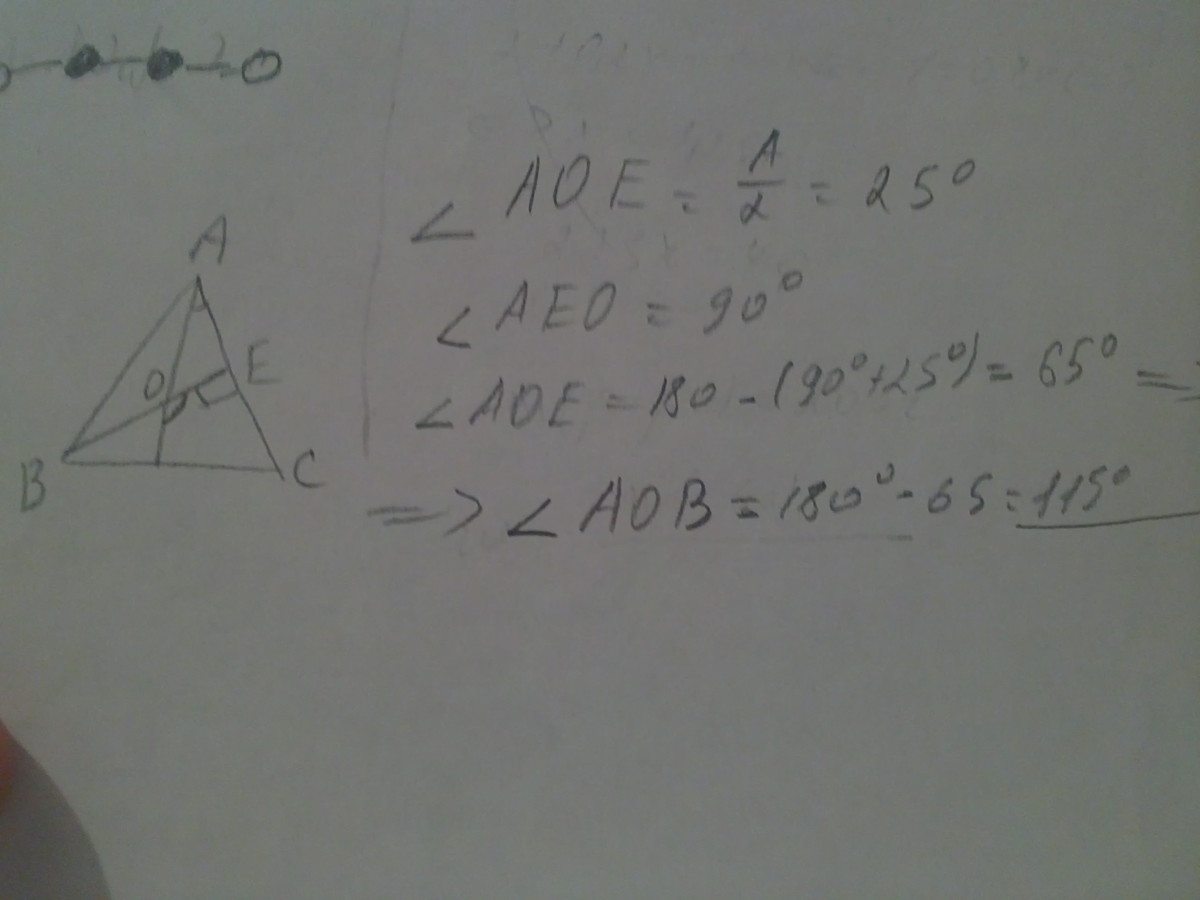 A
O
E
B
C
∠ AOE = A/2 = 25°
∠ AEO = 90°
∠ AOE = 180 - (90° + 25°) = 65° =>
=> ∠ AOB = 180° - 65 = 115°